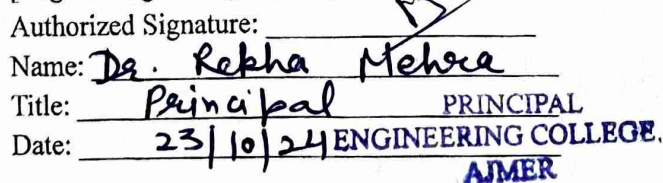 Authorized Signature:
Name: Dr. Rekha Mehra
Title: Principal PRINCIPAL
Date: 23/10/24 ENGINEERING COLLEGE,
AJMER